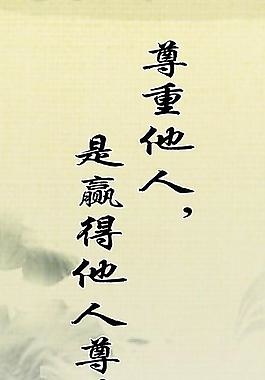 尊重他人，
是赢得他人尊